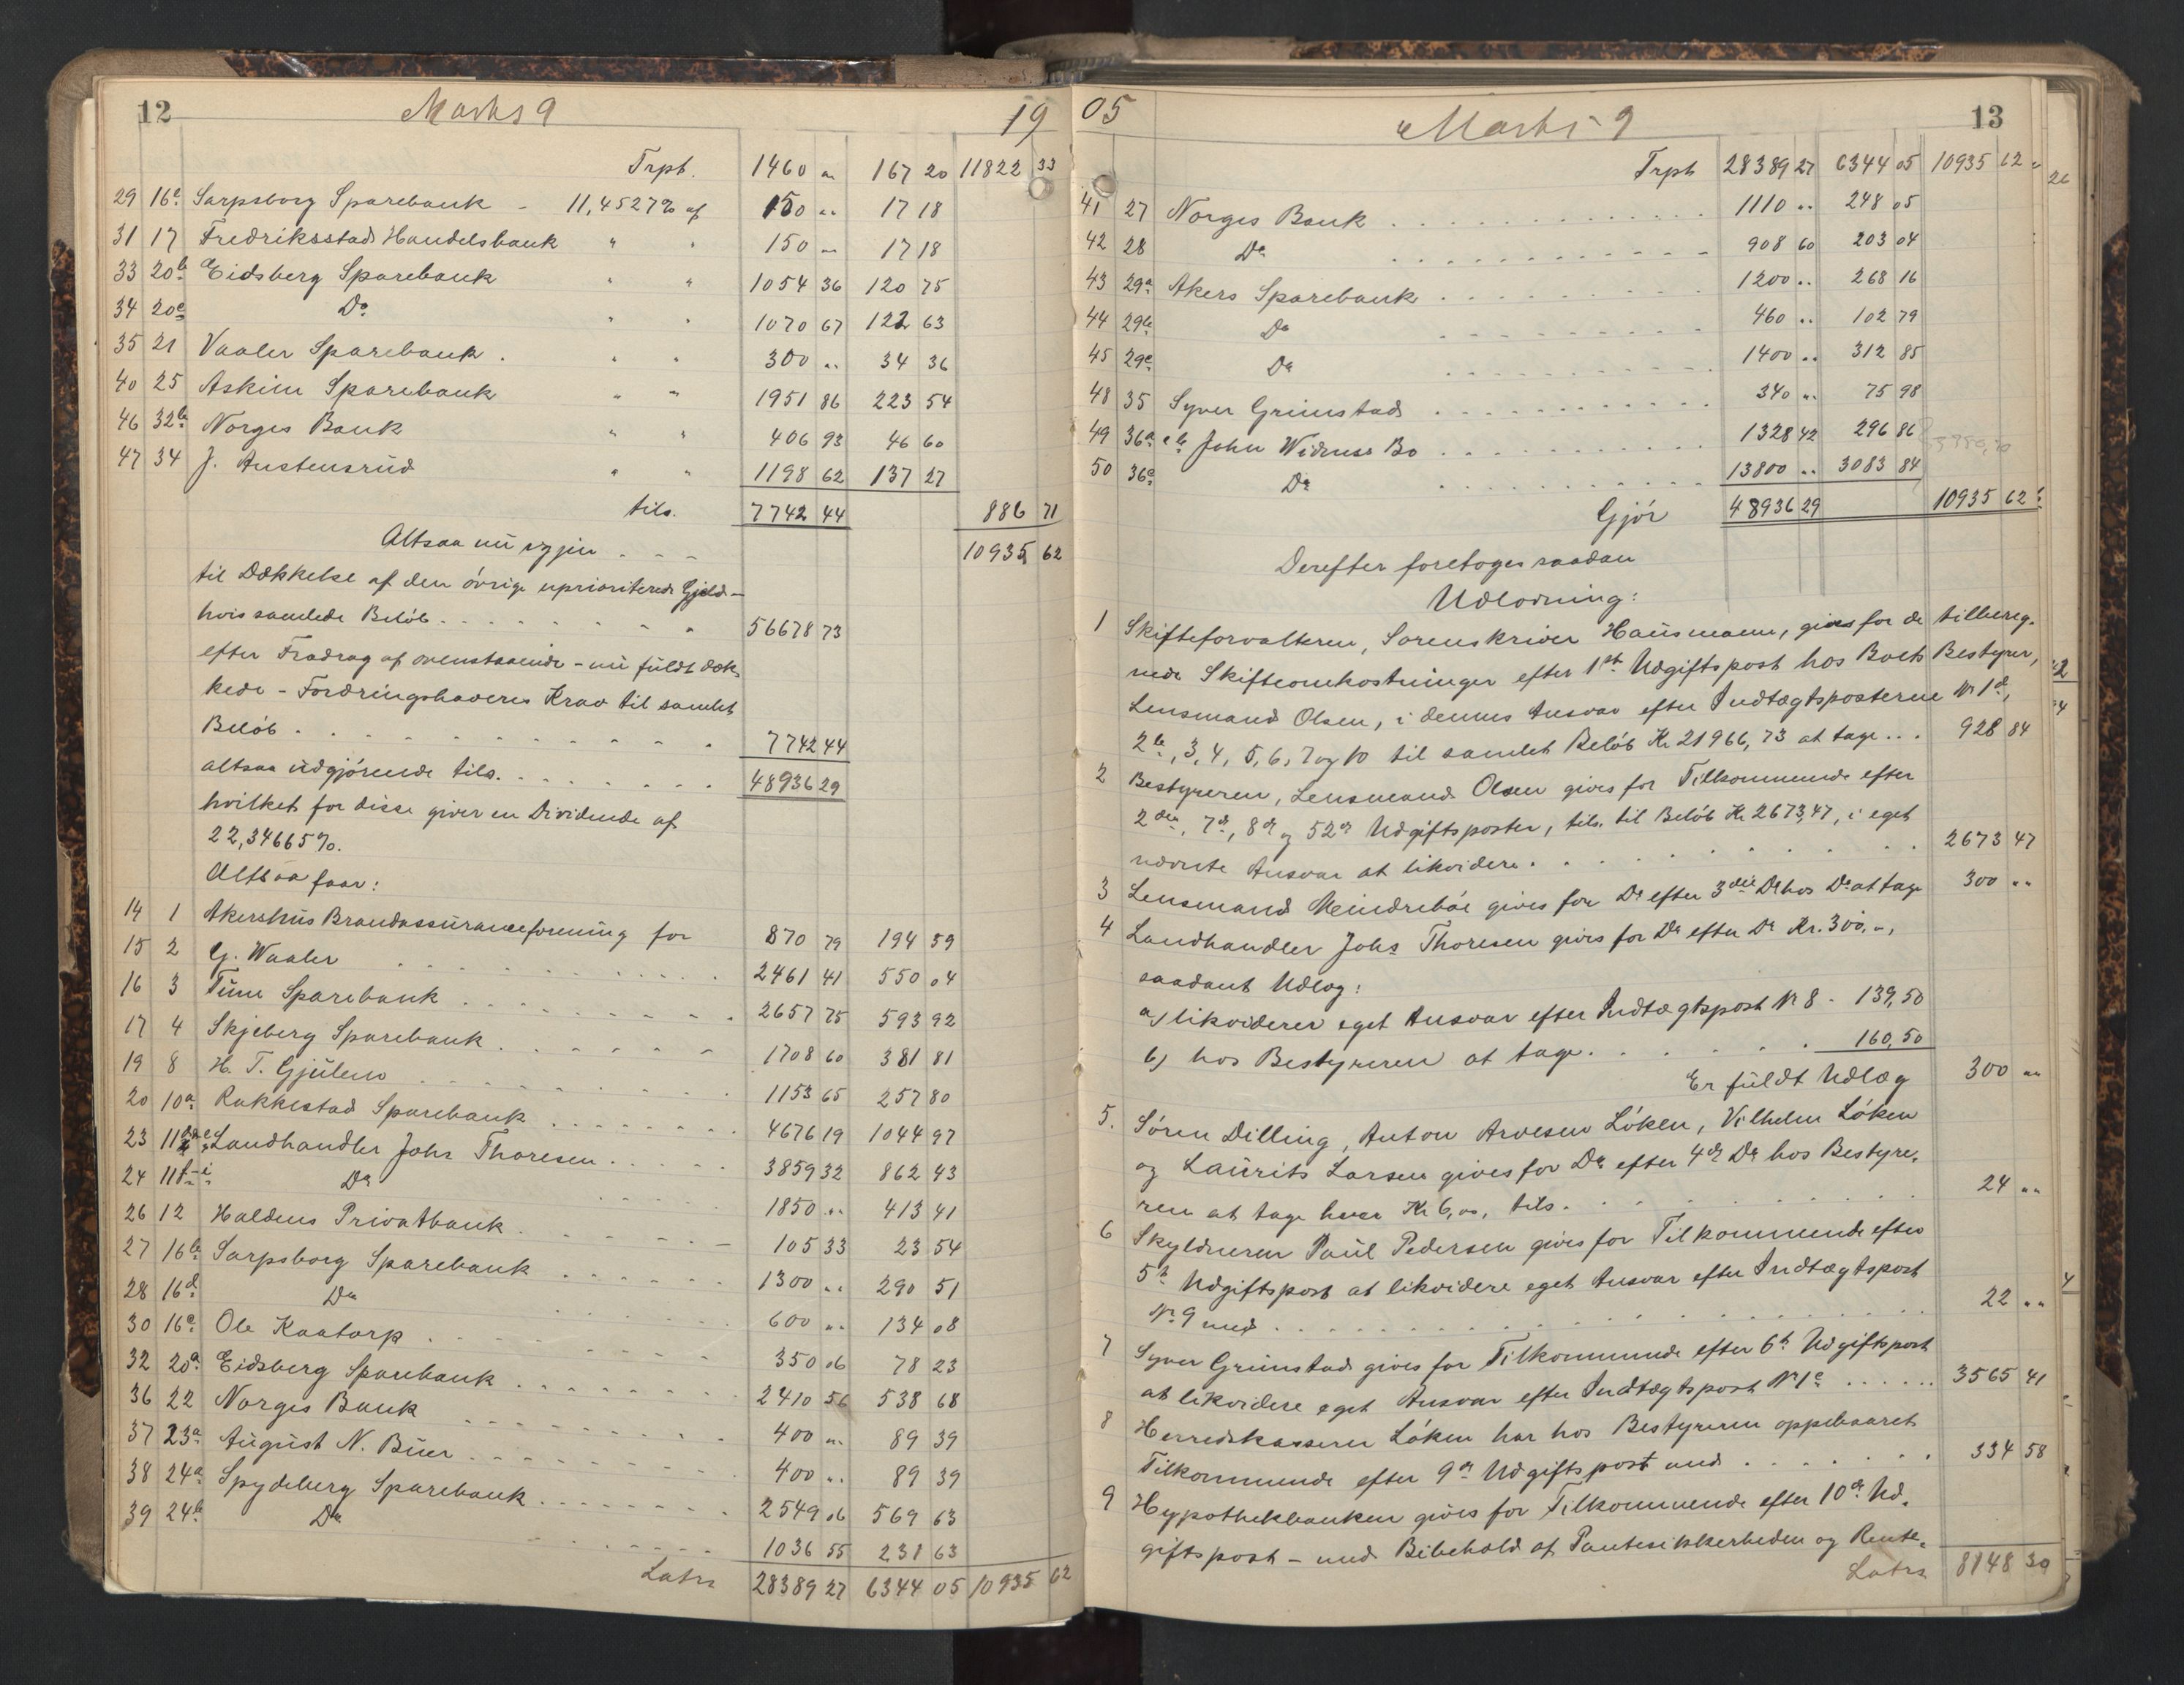 12 Marts 9 19
Trpt. 1460 " 167 20 11822 33
29 16c Sarpsborg Sparebank - 11,4527% af 150 " 17 18
31 17 Fredriksstad Handelsbank " " 150 " 17 18
33 20b Eidsberg Sparebank " " 1054 36 120 75
34 20c Do " " 1070 67 122 63
35 21 Vaaler Sparebank . " " 300 " 34 36
40 25 Askim Sparebank " " 1951 86 223 54
46 32b Norges Bank " " 406 93 46 60
47 34 J. Austensrud " " 1198 62 137 27
tils. 7742 44 886 71
Altsaa nu igjen - - - 10935 62
til Dækkelse af den øvrige uprioriterede Gjeld -
hvis samlede Beløb . . . . . . . . 56678 73
efter Fradrag af ovenstaaende - nu fuldt dæk-
kede - Fordringshaveres Krav til samlet
Beløb . . . . . . . . . . . 7742 44
altsaa udgjørende tils. . . . . . . 48936 29
hvilket for disse giver en Dividende af
22,34665%.
Altsaa faar:
14 1 Akershus Brandassuranceforening for 870 79 194 59
15 2 G. Waaler . . . . . . . . . . 2461 41 550 04
16 3 Tune Sparebank . . . . . . . . 2657 75 593 92
17 4 Skjeberg Sparebank . . . . . . 1708 60 381 81
19 8 H. T. Gjulem . . . . . . . . . 1153 65 257 80
20 10a Rakkestad Sparebank . . . . . . . 4676 19 1044 97
23 11 Landhandler Johs Thoresen . . . . . 3859 32 862 43
24 11f-i Do . . . . 1850 " 413 41
26 12 Haldens Privatbank . . . . . . 105 33 23 54
27 16b Sarpsborg Sparebank . . . . . . 1300 " 290 51
28 16d Do . . . . . 600 " 134 08
30 16e Ole Kaatorp . . . . . . . . 350 06 78 23
32 20a Eidsberg Sparebank . . . . . . . 2410 56 538 68
36 22 Norges Bank . . . . . . . . 400 " 89 39
37 23a August N. Buer . . . . . . . . 400 " 89 39
38 24a Spydeberg Sparebank . . . . . . . 2549 06 569 63
39 24b Do . . . . . . 1036 55 231 63
Latrs 28389 27 6344 05 10935 62
05 Marts 9 13
Trpt 28389 27 6344 05 10935 62
41 27 Norges Bank . . . . . . . . . . 1110 " 248 05
42 28 Do . . . . . . . . . . 908 60 203 04
43 29a Akers Sparebank . . . . . . . . 1200 " 268 16
44 29b Do . . . . . . . . 460 " 102 79
45 29c Do . . . . . . . . 1400 " 312 85
48 35 Syver Grimstad . . . . . . . . 340 " 75 98
49 36a & b John Widness Bo . . . . . . . . 1328 42 296 86
50 36c Do . . . . . . . . 13800 " 3083 84
Gjør 48936 29 10935 62
Derefter foretoges saadan
Udlodning:
1 Skifteforvalteren, Sorenskriver Hausmann, gives for de tilbereg-
nede Skifteomkostninger efter 1ste Udgiftspost hos Boets Bestyrer,
Lensmand Olsen, i dennes Ansvar efter Indtægtsposterne No 1d,
2b, 3, 4, 5, 6, 7 og 10 til samlet Beløb Kr 21966,73 at tage . . . 928 84
2 Bestyreren, Lensmand Olsen gives for Tilkommende efter
2den, 7de, 8de og 52de Udgiftsposter, tils. til Beløb Kr. 2673,47, i eget
nævnte Ansvar at likvidere . . . . . . . . . . 2673 47
3 Lensmand Meindrebøe gives for Do efter 3die Do hos Do at tage 300 "
4 Landhandler Johs Thoresen gives for Do efter Do Kr. 300,-,
saadant Udlæg:
a) likviderer eget Ansvar efter Indtægtspost No 8 - 139,50
b) hos Bestyreren at tage . . . . . . . 160,50
Er fuldt Udlæg 300 "
5. Søren Dilling, Anton Arvesen Løken, Vilhelm Løken
og Laurits Larsen gives for Do efter 4de Do hos Bestyre-
ren at tage hver Kr 6,00, tils. . . . . . . . . . 24 "
6 Skyldneren Paul Pedersen gives for Tilkommende efter
5te Udgiftspost at likvidere eget Ansvar efter Indtægtspost
No 9 med . . . . . . . . . . . . . . 22 "
7 Syver Grimstad gives for Tilkommende efter 6te Udgiftspost
at likvidere eget Ansvar efter Indtægtspost No 1c . . . . . . 3565 41
8 Herredskasserer Løken har hos Bestyreren oppebaaret
Tilkommende efter 9de Udgiftspost med . . . . . . . 334 58
9 Hypothekbanken gives for Tilkommende efter 10de Ud-
giftspost - med Bibehold af Pantesikkerheden og Rente-
Latrs 8148 30